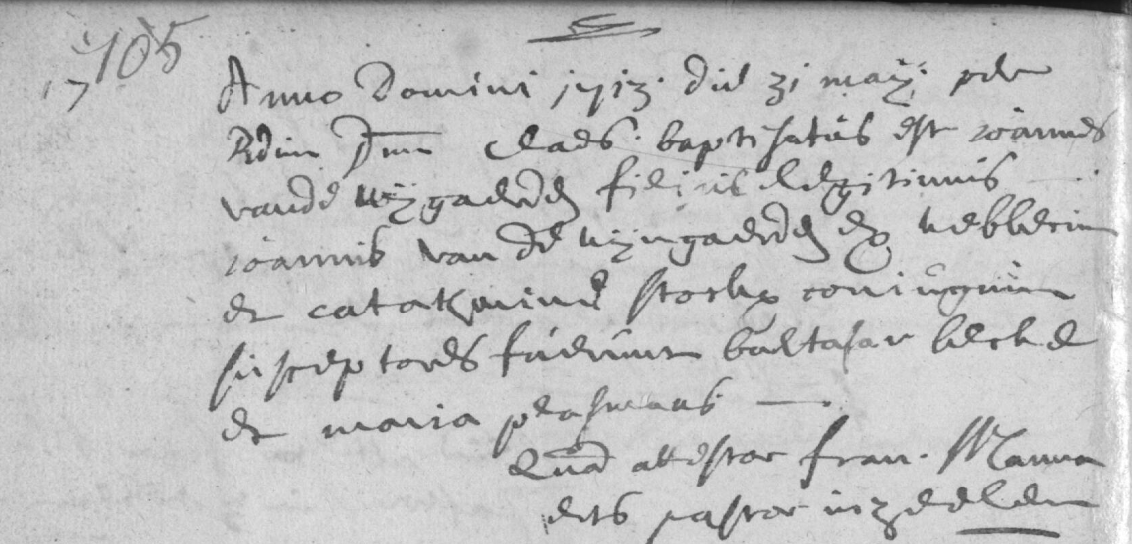 17105
Anno Domini 1713 die 31 maij per
Rdum Dnum Claes baptisatus est joannes
vande wijgaerden filius legitimus
joannis van de wijngaerden ex
et catatharine stockx coniugum
susceptores fuerunt baltasar becke
et maria plasmans
Quod attestor fran. Manna
erts pastor in zeelem